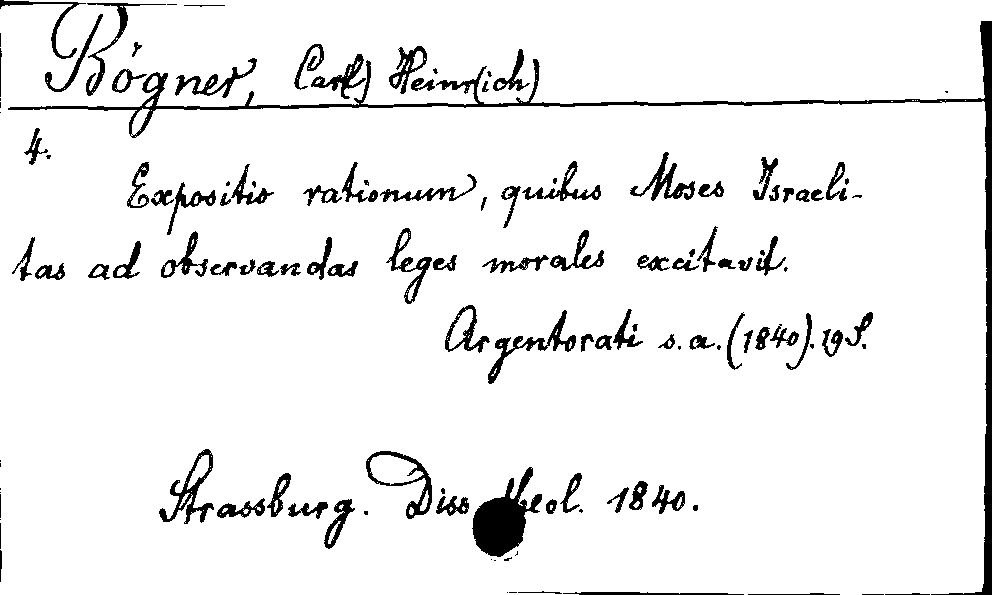 Bögner, Car(l) Heinr(ich)
4.
Expositio rationum, quibus Moses Israeli-
tas ad observandas leges morales excitavit.
Argentorati s. a. (1840). 19 S.
Strassburg. Diss. theol. 1840.